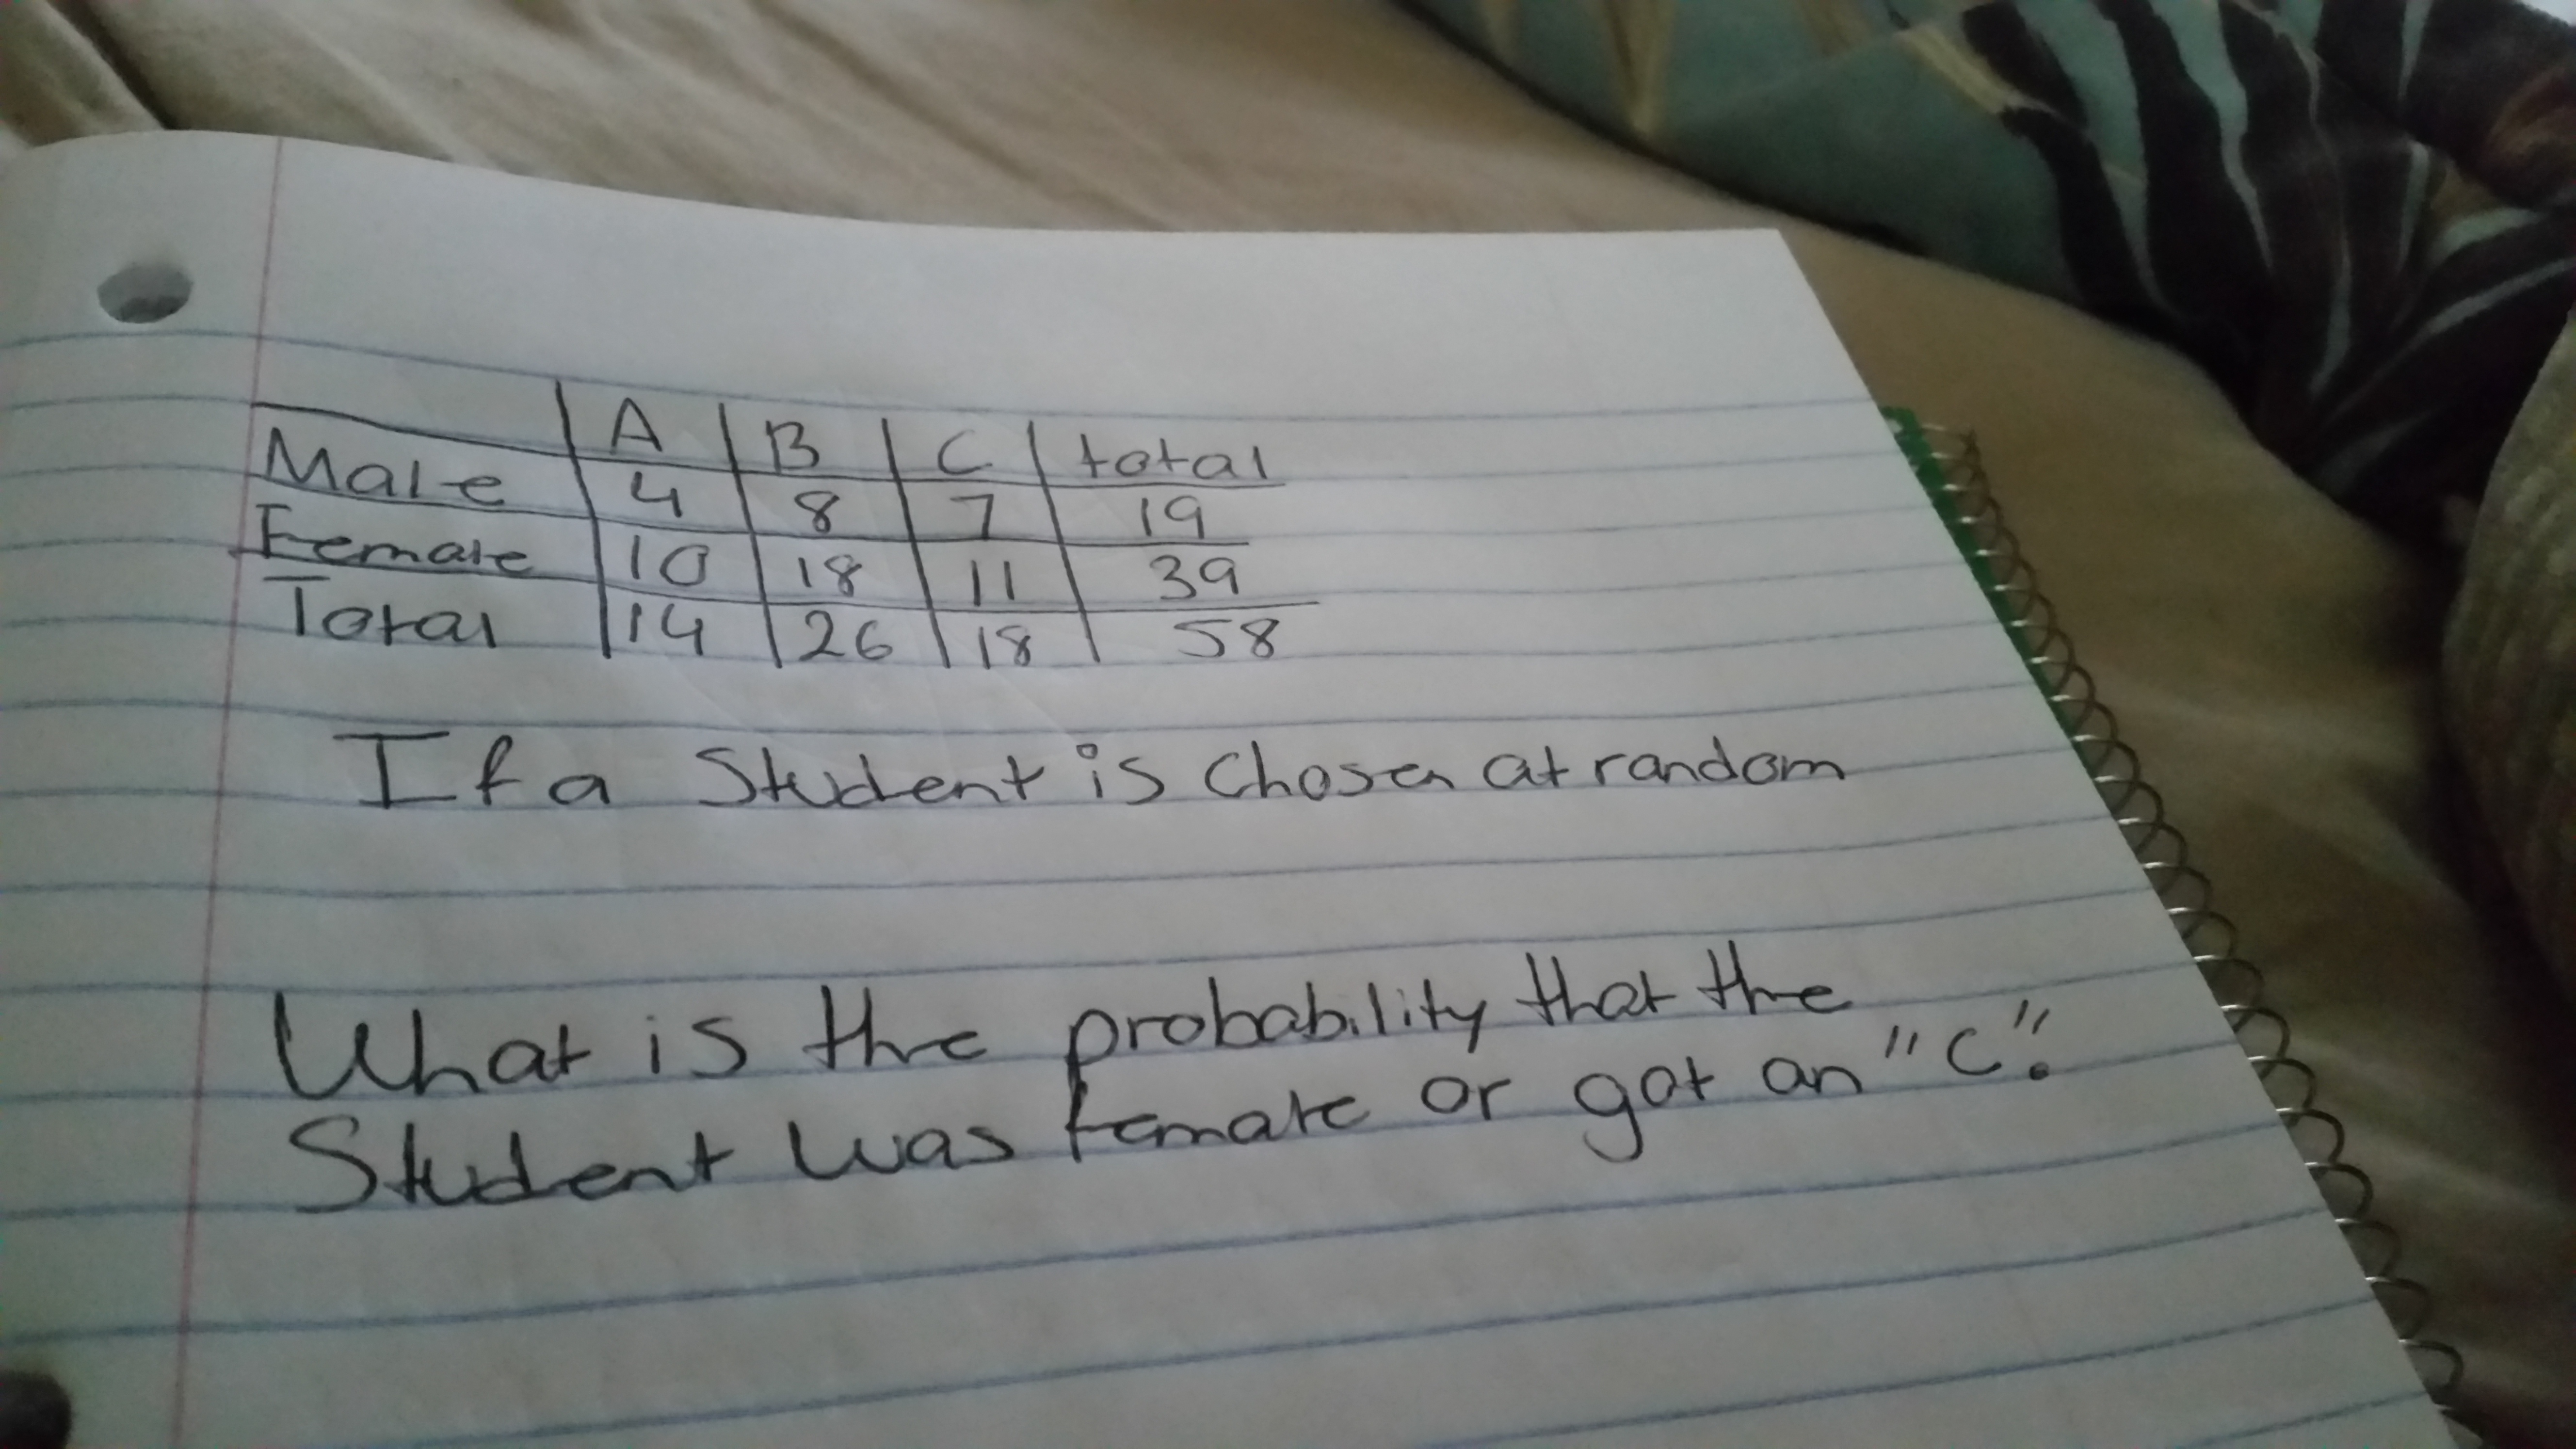 A B C total
Male 4 8 7 19
Female 10 18 11 39
Total 14 26 18 58
If a Student is Chosen at random
What is the probability that the
Student was female or got an "C".